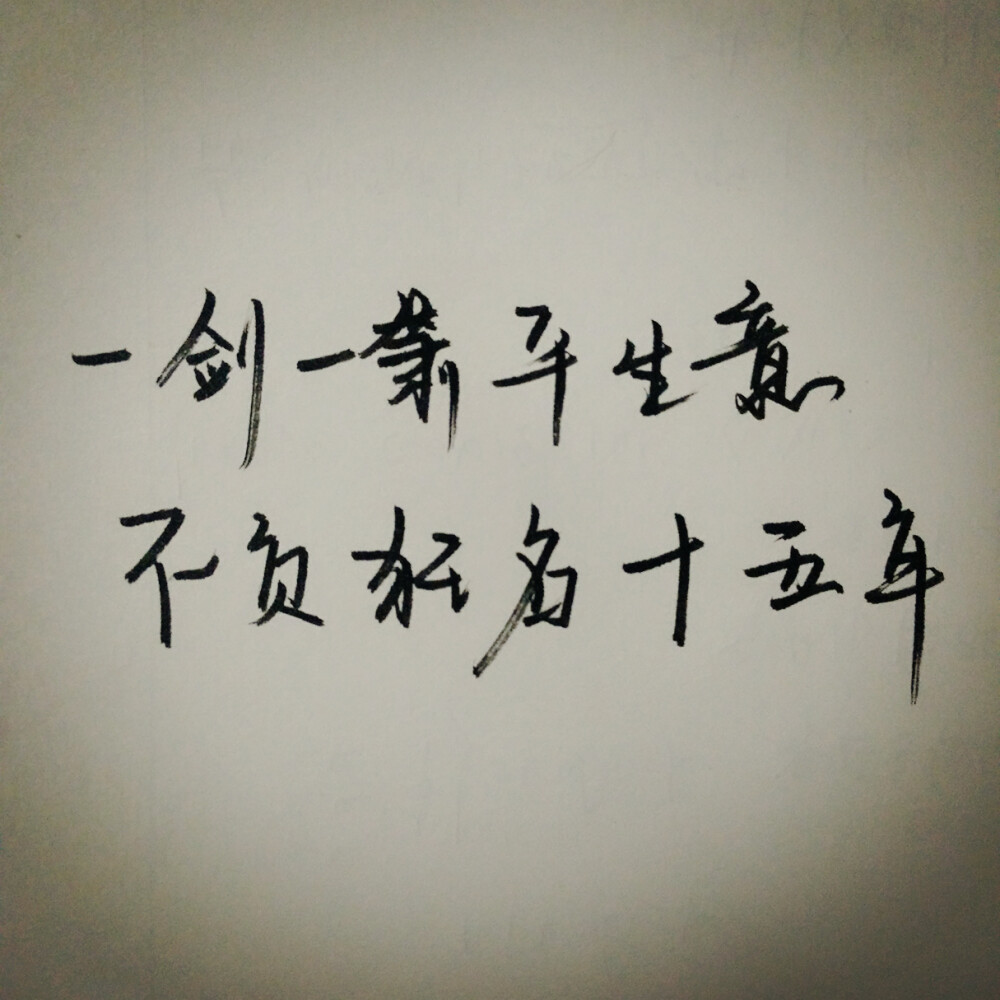 一剑一萧平生意
不负狂名十五年